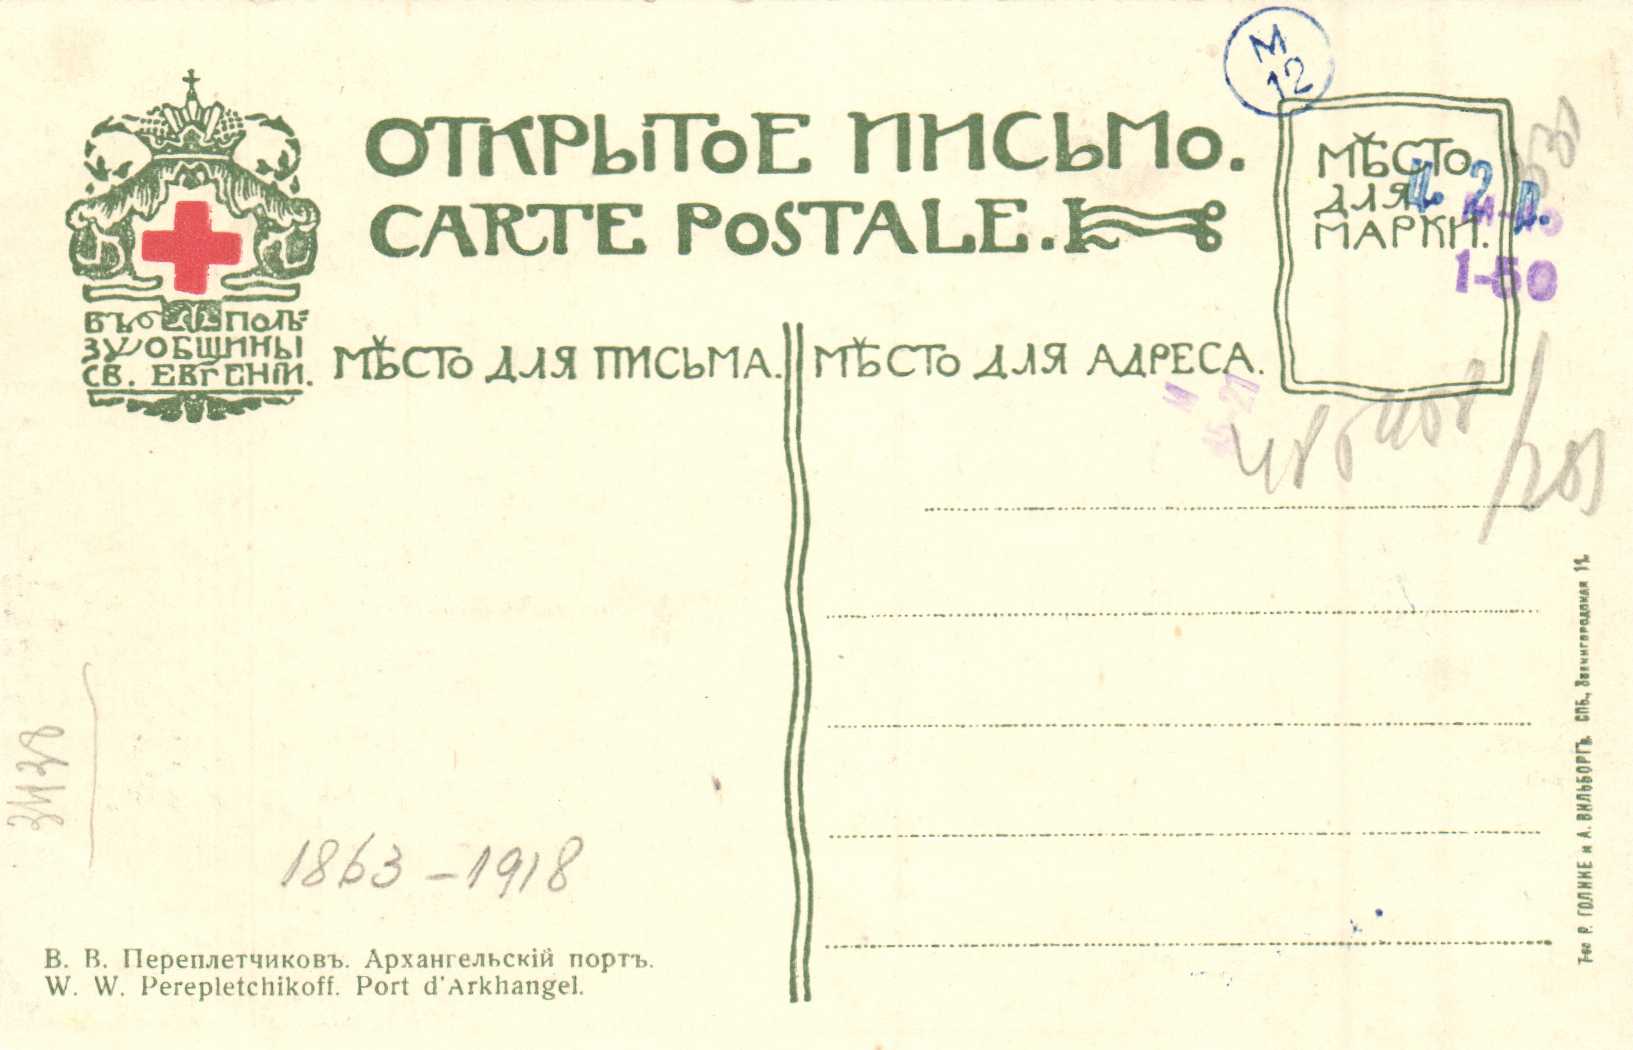 М
12
ОТКРЫТОЕ ПИСЬМО.
CARTE POSTALE.
МѢСТО
ДЛЯ
МАРКИ.
ц. 2 р.
1-50
ВЪ ПОЛЬ=
ЗУ ОБЩИНЫ
СВ. ЕВГЕНІИ.
МѢСТО ДЛЯ ПИСЬМА.
МѢСТО ДЛЯ АДРЕСА.
Т-во Р. ГОЛИКЕ и А. ВИЛЬБОРГЪ. СПБ., Звенигородская 11.
1863 – 1918
В. В. Переплетчиковъ. Архангельскій портъ.
W. W. Perepletchikoff. Port d'Arkhangel.